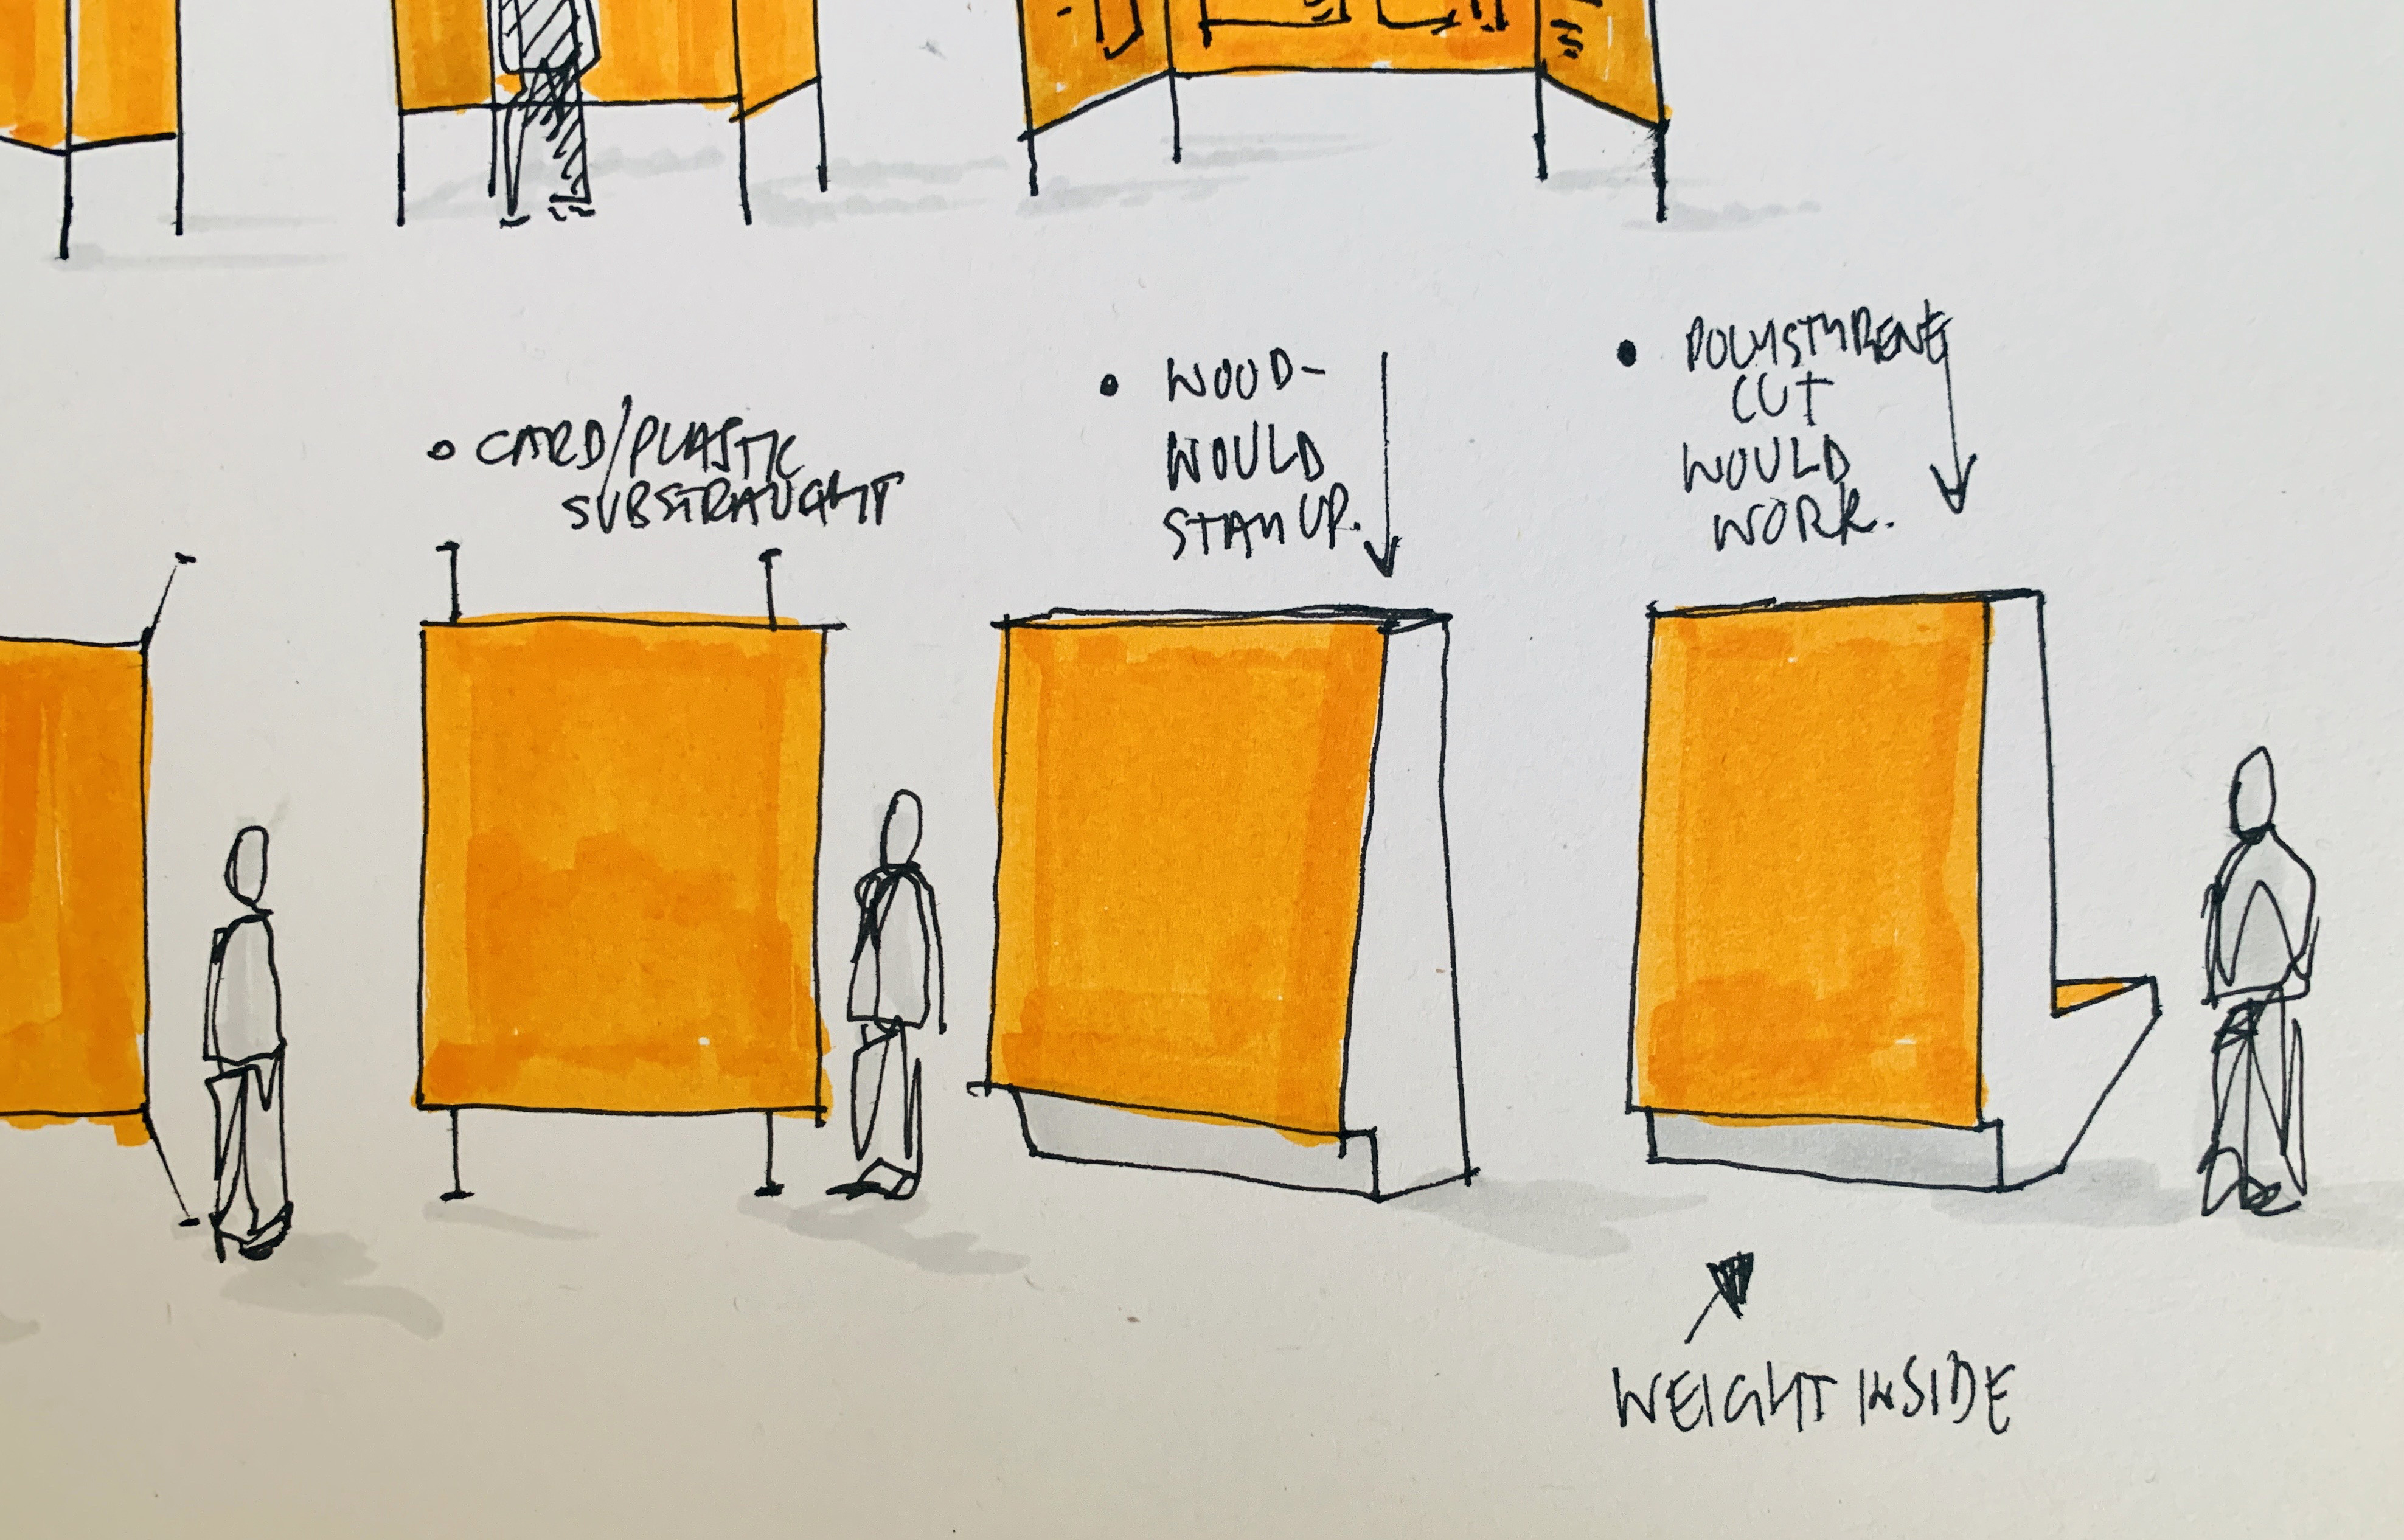 CARD/PLASTIC
SUBSTRAUGHT
WOOD-
WOULD
STAN UP.
POLYSTYRENE
CUT
WOULD
WORK.
WEIGHT INSIDE